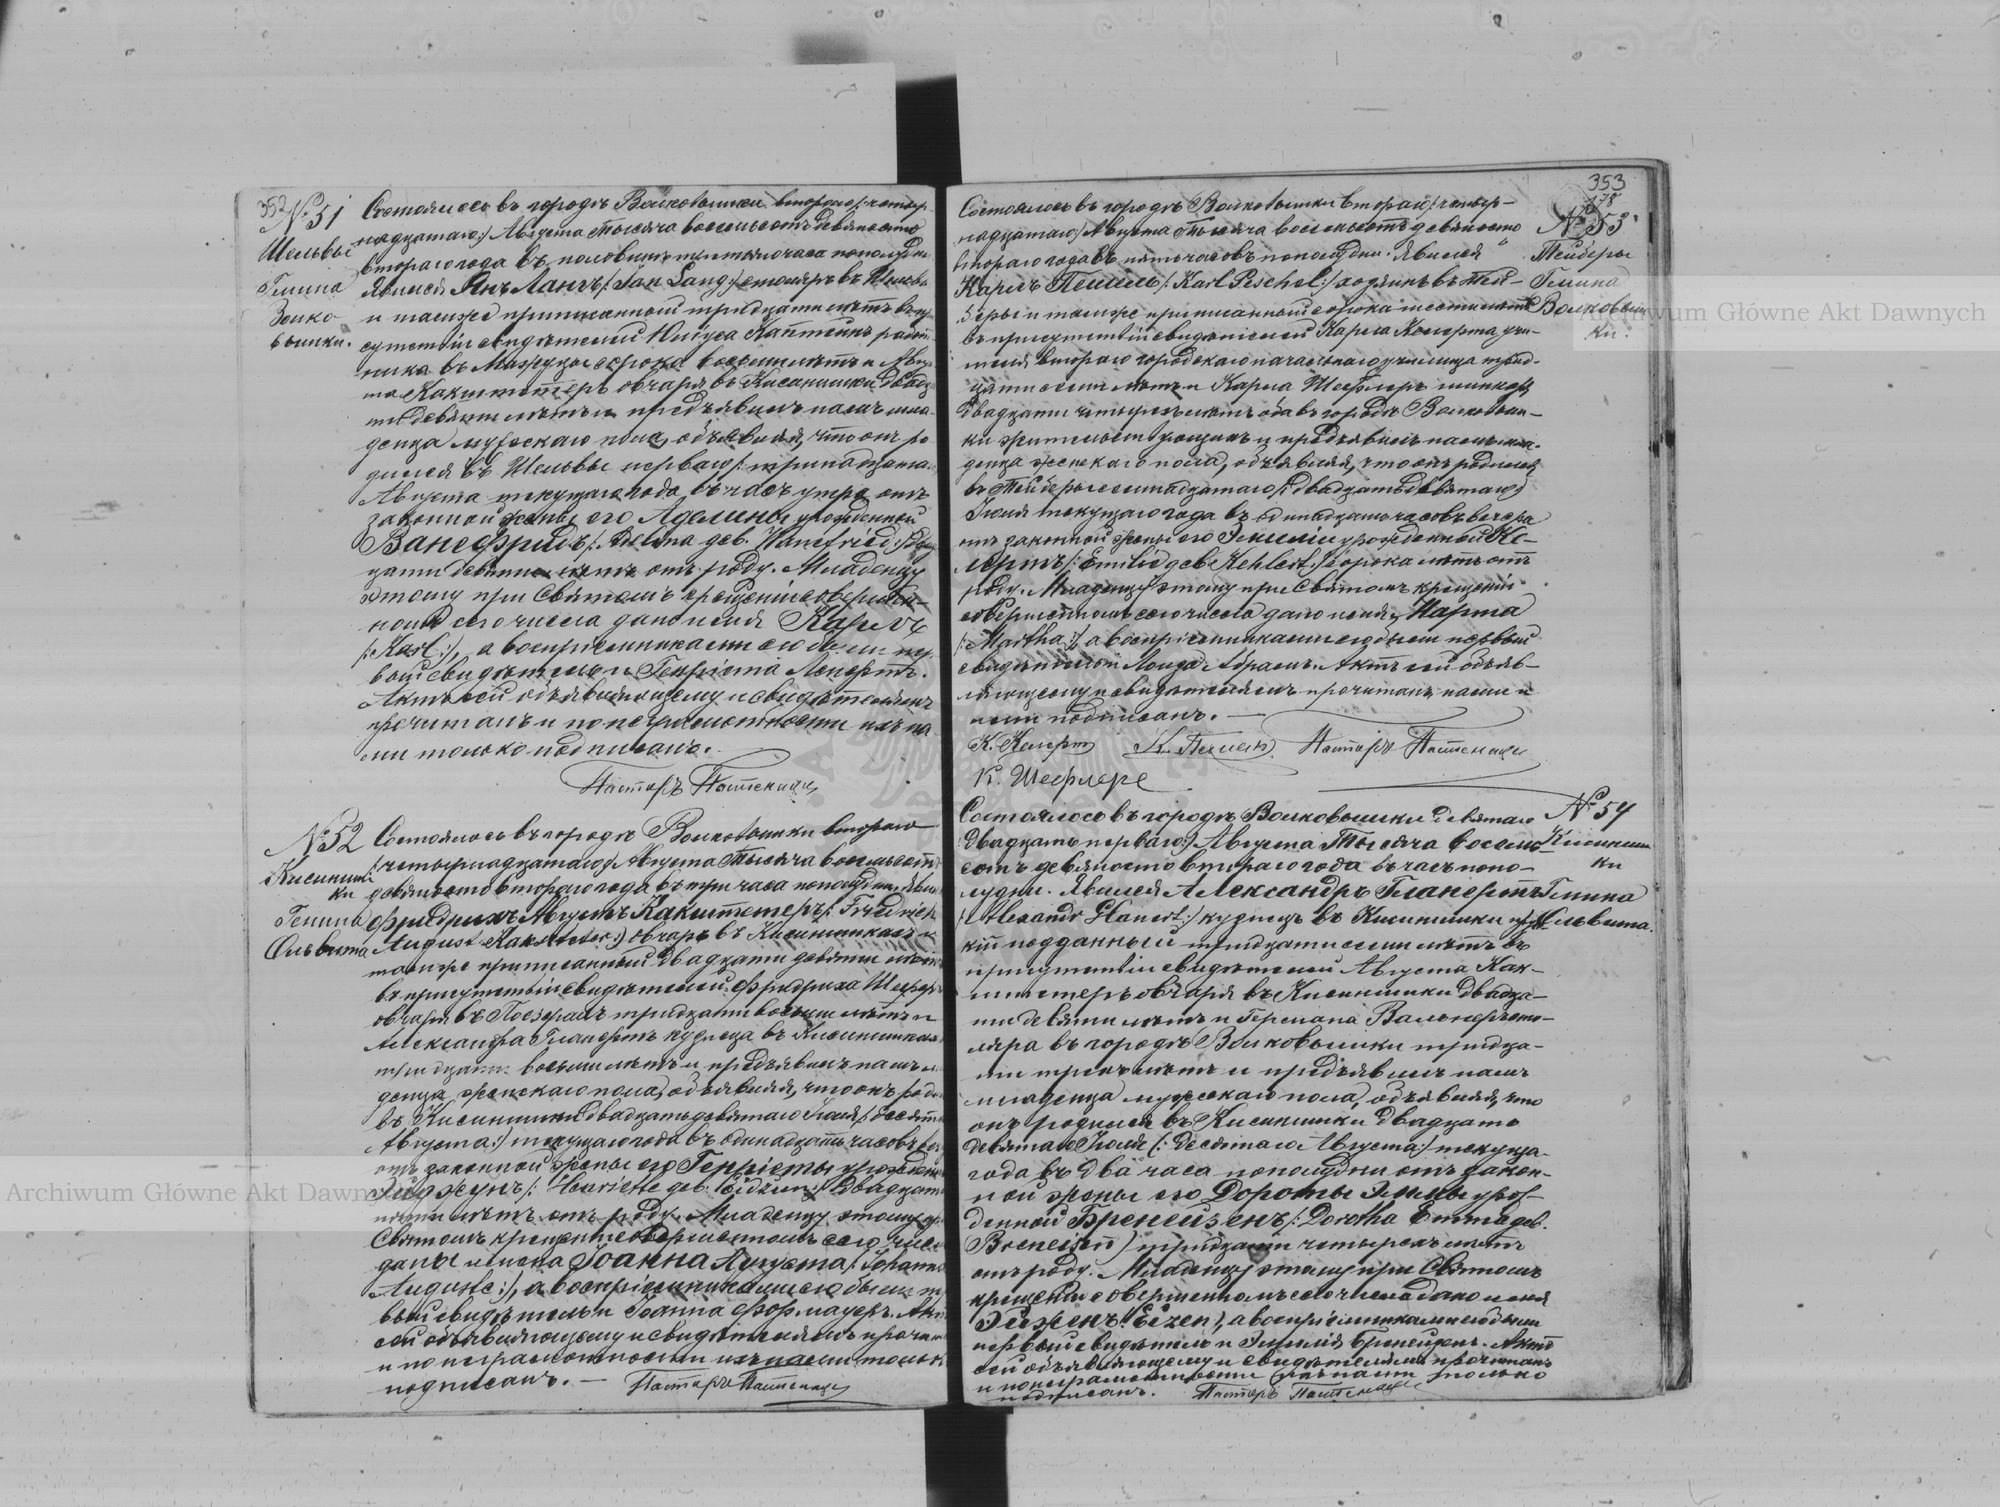 352
№ 51
Шельвы
Гмина
Волко
вышки.
Состоялось въ городѣ Волковышки втораго /: четыр-
надцатаго :/ Августа Тысяча восемьсотъ девяносто
втораго года въ половинѣ третьяго часа пополудни
Явился Янъ Лангъ /: Jan Lang :/ столяръ въ Шельвы
и тамже приписанный тридцати лѣтъ въ при
сутствіи свидѣтелей Юліуса Каптейнъ работ
ника въ сорока восьми лѣтъ и Авгу
ста Какштетеръ овчаря въ Кисинишки двадца
ти девяти лѣтъ и предъявилъ намъ мла-
денца мужескаго пола, объявляя, что онъ ро
дился въ Шельвы перваго /: тринадцата
Августа текущаго года въ часъ утра отъ
законной жены его Аделины урожденной
Ванефридъ /: Delina geb. Wanefried :/ два
дцати девяти лѣтъ отъ роду. Младенцу
этому при Святомъ крещеніи совершен-
номъ сего числа дано имя Карлъ
/: Karl :/, а воспріемниками его были пер
вый свидѣтель и Генріета Леперт.
Актъ сей объявляющему и свидѣтелямъ
прочитанъ и по неграмотности ихъ на
ми только подписанъ.
Пасторъ
№ 52
Кисиниш
ки
Гмина
Ольвита
Состоялось въ городѣ Волковышки втораго
/: четырнадцатаго :/ Августа Тысяча восемьсотъ
девяносто втораго года въ три часа пополудни. Яви
Фридрихъ Августъ Какштетеръ /: Friedrich
August Kaksteter :/ овчаръ въ Кисинишкахъ и
тамже приписанный двадцати девяти лѣтъ
въ присутствіи свидѣтелей Фридриха Шефер
овчаря въ тридцати восьми лѣтъ и
Александра Гланертъ кузнеца въ Кисинишкахъ
тридцати восьми лѣтъ и предъявилъ намъ м
денца женскаго пола, объявляя, что онъ роди
въ Кисинишки двадцать девятаго Іюля /: десят
Августа :/ текущаго года въ одинадцать часовъ
отъ законной жены его Генріеты урожден
Эйджунъ /: Henriette geb. Eidzun :/ двадцати
лѣтъ отъ роду. Младенцу этому при
Святомъ крещеніи совершенномъ сего числ
даны имена Іоанна Августа /: Johanna
Auguste :/, а воспріемниками его были пер
вый свидѣтель и Іоанна Формауеръ. Акт
сей объявляющему и свидѣтелямъ прочит
и по неграмотности ихъ нами только
подписанъ. —
Пасторъ
353
178
№ 53
Тейберы
Гмина
Волковыш
ки.
Состоялось въ городѣ Волковышки втораго /: четыр-
надцатаго :/ Августа Тысяча восемьсотъ девяносто
втораго года въ пять часовъ пополудни. Явился
Карлъ Пешель /: Karl Peschel :/ хозяинъ въ Тей-
беры и тамже приписанный сорока шести лѣтъ
въ присутствіи свидѣтелей Карла Келерта учи-
теля втораго городскаго начальнаго училища трид-
цати семи лѣтъ и Карла Шефлеръ
двадцати четырехъ лѣтъ оба въ городѣ Волковыш-
ки жительствующихъ и предъявилъ намъ мла-
денца женскаго пола, объявляя, что онъ родился
въ Тейберы семнадцатаго /: двадцать девятаго :/
Іюля текущаго года въ одинадцать часовъ вечера
отъ законной жены его Эмиліи урожденной Ке-
лертъ /: Emilie geb. Kehlert :/ сорока лѣтъ отъ
роду. Младенцу этому при Святомъ крещеніи
совершенномъ сего числа дано имя Марта
/: Martha :/ а воспріемниками его были первый
свидѣтель и Луиза Абрамъ. Актъ сей объяв-
ляющему и свидѣтелямъ прочитанъ, нами и
ими подписанъ. —
К. Келертъ К. Пешель Пасторъ
К. Шефлеръ
№ 54
Кисиниш
ки
Гмина
Ольвита.
Состоялось въ городѣ Волковышки девятаго
/: двадцать перваго :/ Августа Тысяча восемь
сотъ девяносто втораго года въ часъ попо-
лудни. Явился Александръ Гланертъ
/: Alexandr Glanert :/ кузнецъ въ Кисинишки прус
кій подданный тридцати семи лѣтъ въ
присутствіи свидѣтелей Августа Как-
штетеръ овчаря въ Кисинишки двадца-
ти девяти лѣтъ и Германа Вальнеръ сто-
ляра въ городѣ Волковышки тридца-
ти трехъ лѣтъ и предъявилъ намъ
младенца мужескаго пола, объявляя, что
онъ родился въ Кисинишки двадцать
девятаго Іюля /: десятаго Августа :/ текуща-
года въ два часа пополудни отъ закон-
ной жены его Дороты Эммы урож-
денной Бренейзенъ /: Dorotha Emma geb.
Breneisen / тридцати четырехъ лѣтъ
отъ роду. Младенцу этому при Святомъ
крещеніи совершенномъ сего числа дано имя
Эйзенъ /: Eizen /, а воспріемниками его были
первый свидѣтель и Эмилія Бренейзенъ. Актъ
сей объявляющему и свидѣтелямъ прочитанъ
и по неграмотности ихъ нами только
подписанъ. Пасторъ
Archiwum Główne Akt Dawnych
Archiwum Główne Akt Dawnych